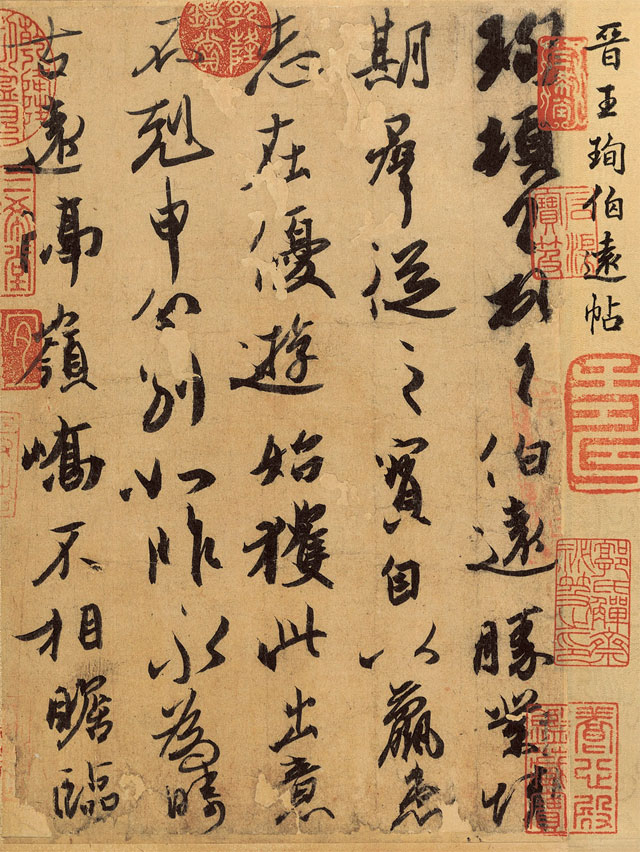 晉王珣伯遠帖
珣頓首頓首伯遠勝業情
期群從之寶自以羸患
志在優遊始獲此出意
不剋申分別如昨永為疇
古遠隔嶺嶠不相瞻臨
三希堂